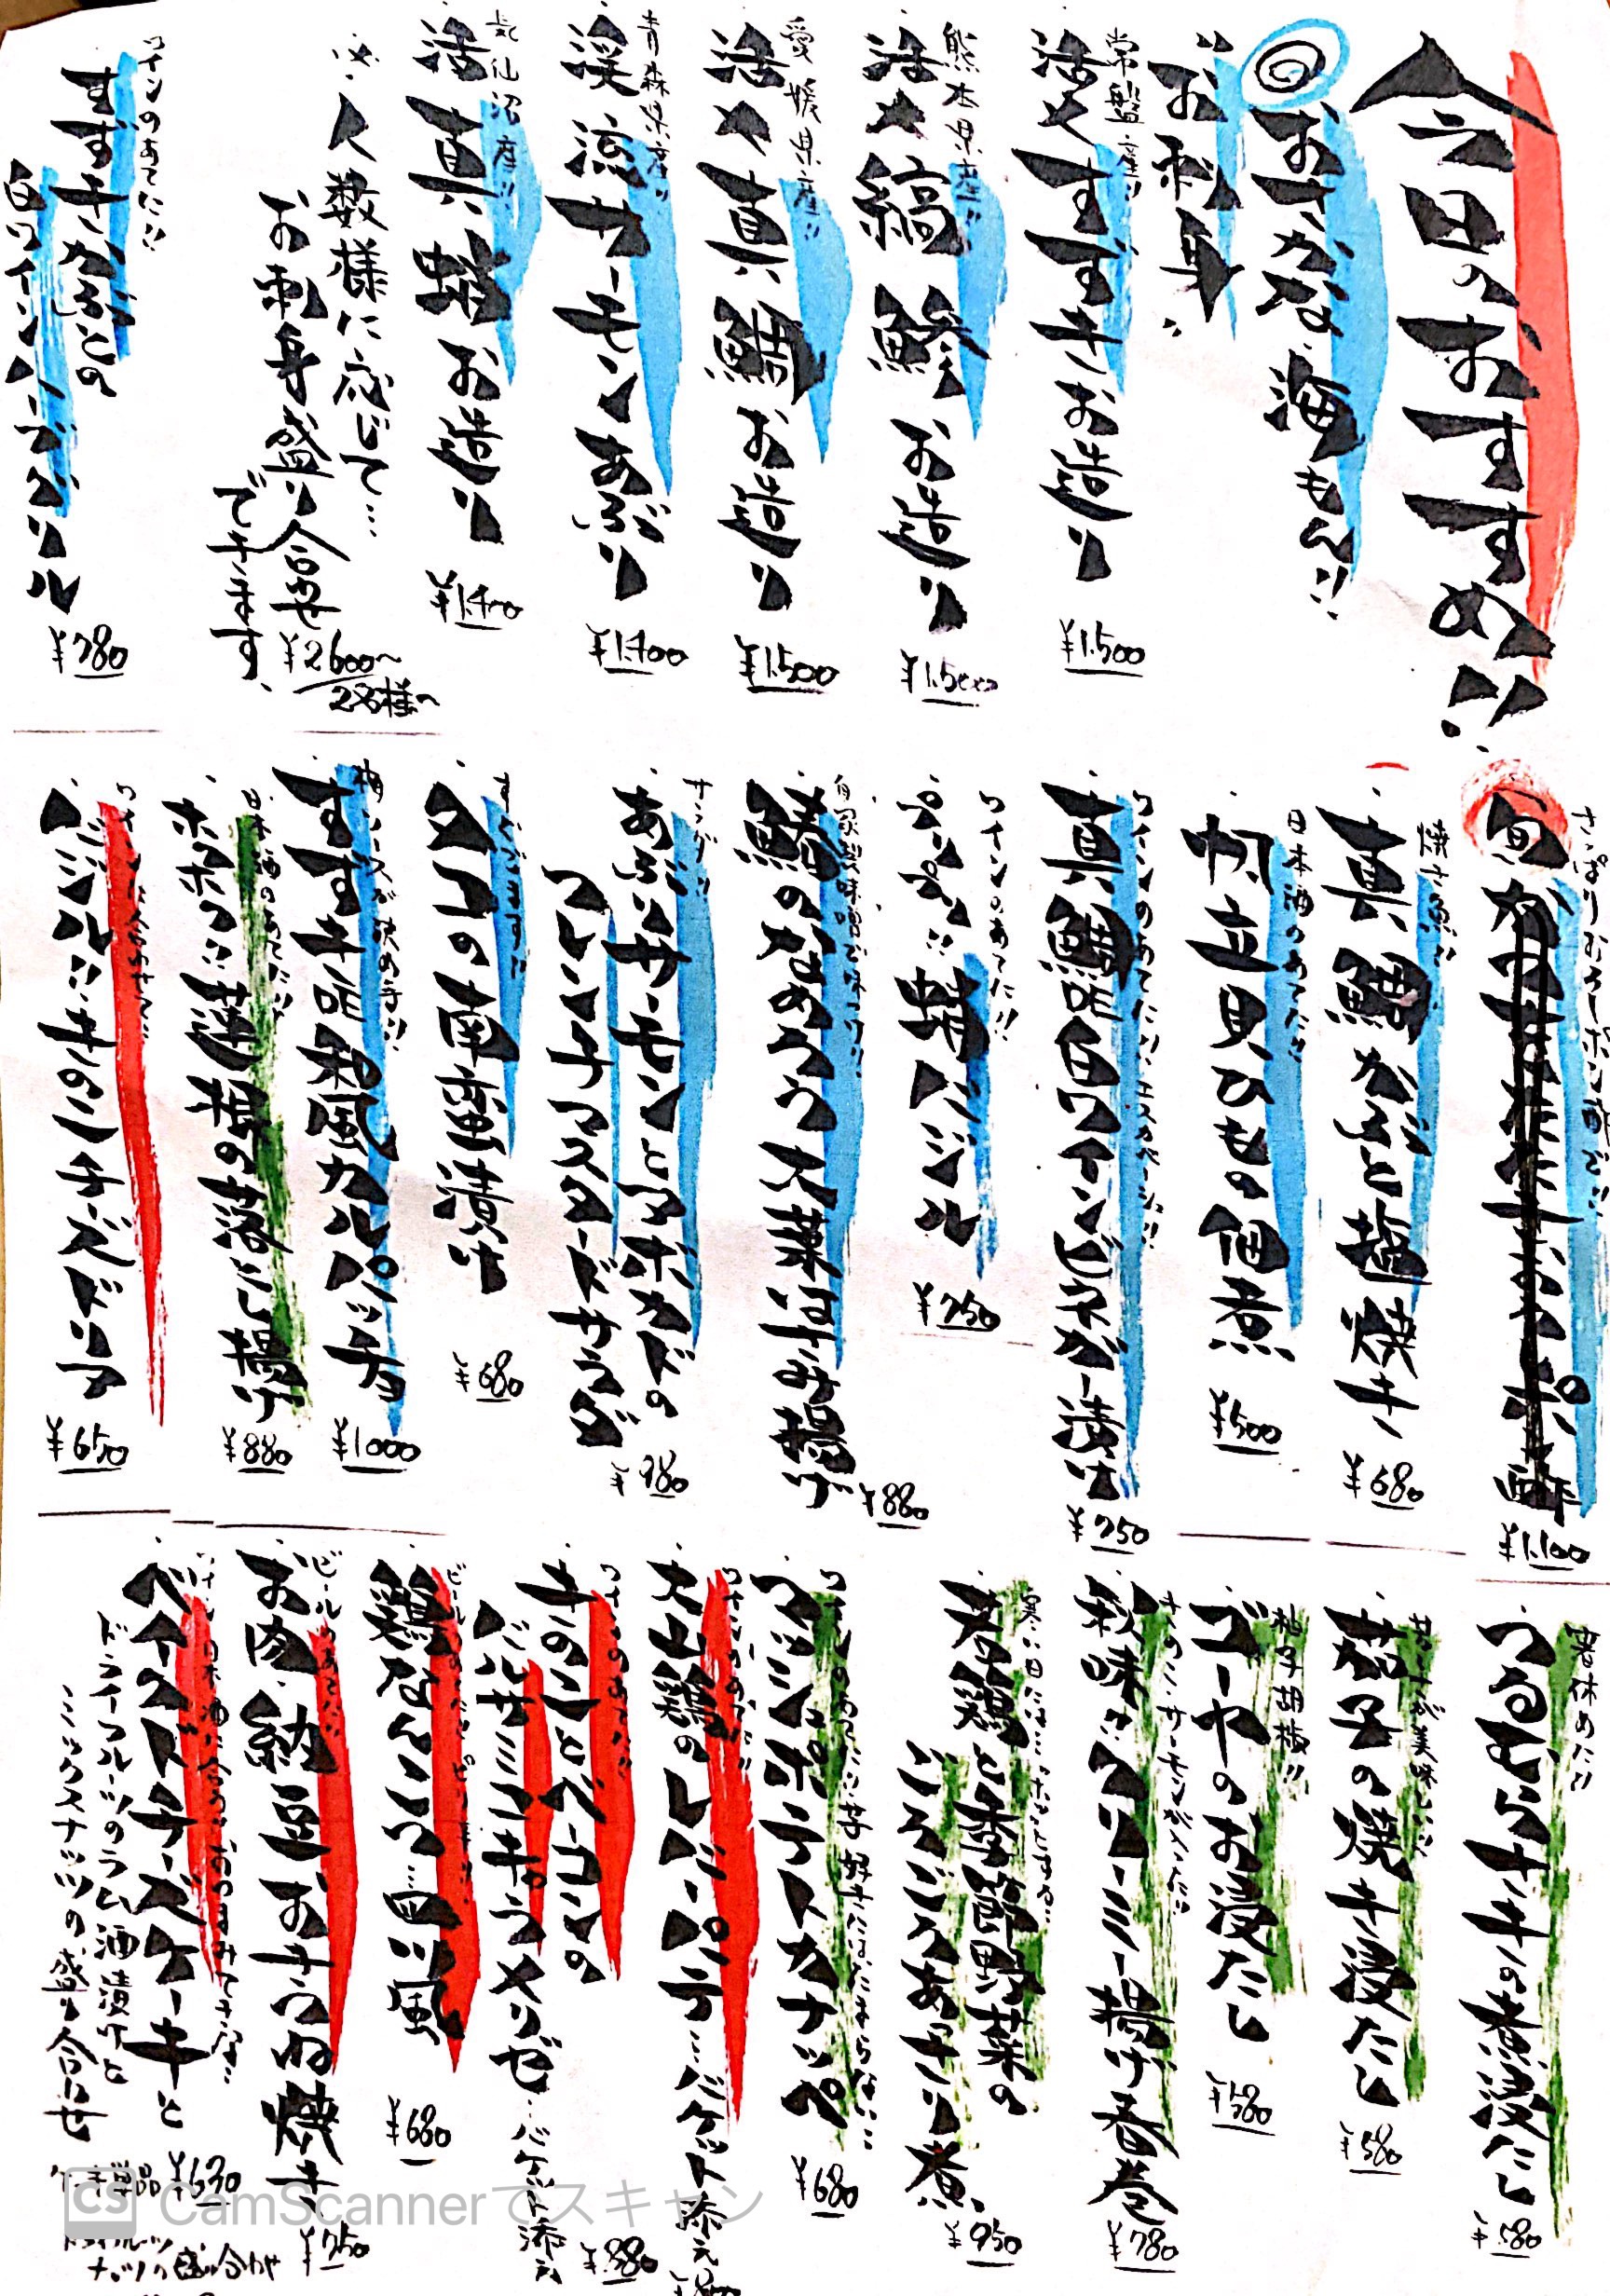 今日のおすすめ!!
◎おさかな・海もん!!
お刺身
常磐産!!
活〆すずきお造り
¥1.500
熊本県産!!
活〆縞鯵お造り
¥1.500
愛媛県産!!
活〆真鯛お造り
¥1.500
青森県産!!
渓流サーモンあぶり
¥1.400
気仙沼産!!
活真蛸お造り
¥1.400
人数様に応じて…
お刺身盛り合わせ
できます、
¥2600〜
2名様〜
ワインのあてに!!
すずきかぶとの
白ワインバデバリル
¥780
さっぱりおろしポン酢で!!
¥1.100
焼き魚!!
真鯛かぶと塩焼き
¥680
日本酒のあてに!!
帆立貝ひもの佃煮
¥500
ワインのあてに!!
真鯛白ワインビネガー漬け
¥750
ワインのあてに!!
蛸バジル
¥750
自家製味噌が味つけ!!
鯵のなめろう大葉はさみ揚げ
¥880
サラダ!!
あぶりサーモンとアボカドの
フレンチマスタードサラダ
¥980
タコの南蛮漬け
¥680
梅ソースが決め手!!
すずき昆布〆和風カルパッチョ
¥1000
日本酒のあてに!!
ホクホク!!蓮根の落とし揚げ
¥880
ワインに合わせて!!
バジル!!きのこチーズドリア
¥650
箸休めに!!
つるむらさきの煮浸たし
¥580
茄子が美味しい!!
茄子の焼き浸たし
¥580
柚子胡椒!!
ゴーヤのお浸たし
¥580
秋味!!クリーミー揚げ春巻
¥780
若鶏と季節野菜の
ごろごろあっさり煮
¥950
マッシュポテトカナッペ
¥680
ワインのあてに!!
大山鶏のレバーパテ…バケット添え
ワインのあてに!!
きのことベーコンの
バルサミコ・きのこメリゼ…バケット添え
¥880
鶏なんこつ…四川風
¥680
ビールのあてに!!
お肉・納豆お好うね焼き
¥750
ベイクドチーズケーキと
ドライフルーツのラム酒漬けと
ミックスナッツの盛り合わせ
ケーキ単品 ¥630
ドライフルーツ
ナッツの盛り合わせ
CS CamScannerでスキャン